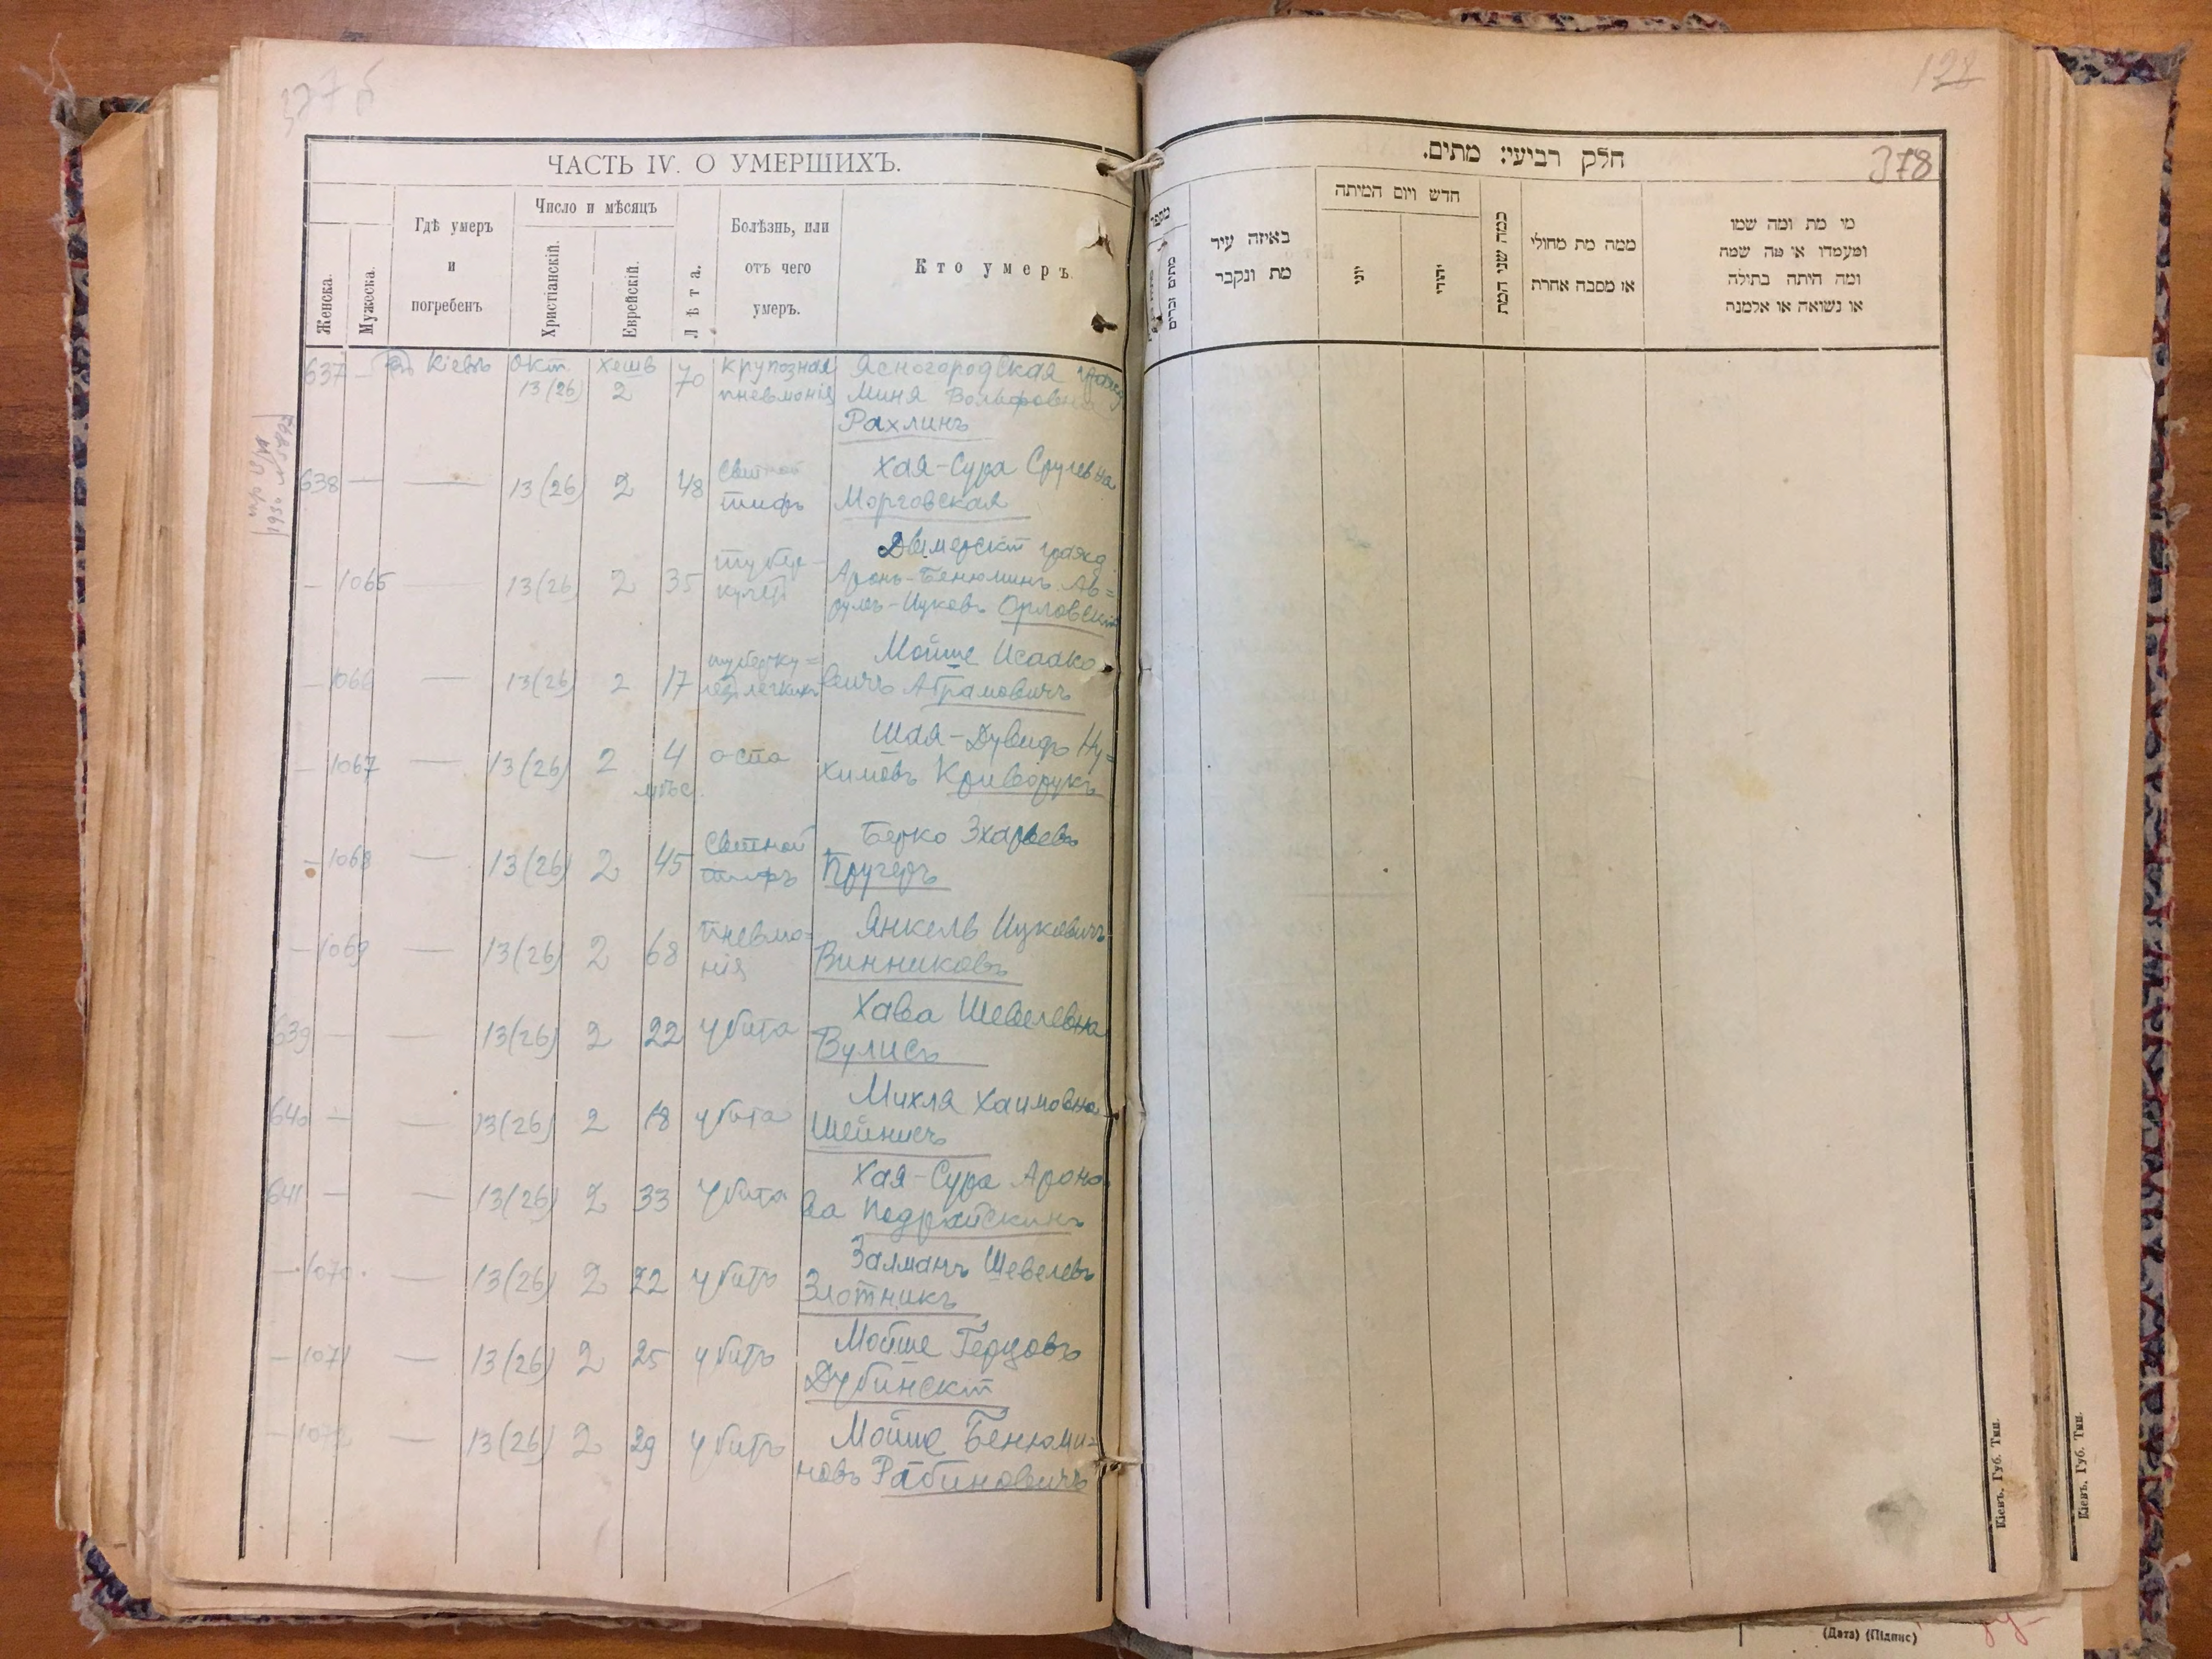 327 б
ЧАСТЬ IV. О УМЕРШИХЪ.
Женска.
Мужеска.
Гдѣ умеръ
и
погребенъ
Число и мѣсяцъ
Христіанскій.
Еврейскій.
Лѣта.
Болѣзнь, или
отъ чего
умеръ.
Кто умеръ.
637 — Кіевъ Окт. хешв 70 крупозная Ясногородская гражд
13 (26) 2 пневмонія Миня Вольфовна
Рахлинъ
638 — — 13 (26) 2 48 Сыпной Хая-Сура Срулевна
тифъ Морговская
— 1065 — 13 (26) 2 35 тубер- Дымерскій гражд.
кулезъ Аронъ-Бенюминъ Ав=
румъ-Ицковъ Орловскій
— 1066 — 13 (26) 2 17 туберку= Мойше Исаако
лез легкихъ вичъ Абрамовичъ
— 1067 — 13 (26) 2 4 оспа Шая-Дувидъ Ну=
мѣс. химовъ Криворукъ
— 1068 — 13 (26) 2 45 Сыпной Берко Зхарьевъ
тифъ Кругеръ
— 1069 — 13 (26) 2 68 пневмо= Янкель Ицковичъ
нія Винниковъ
639 — — 13 (26) 2 22 убита Хава Шевелевна
Вулисъ
640 — — 13 (26) 2 18 убита Михля Хаимовна
Шейнисъ
641 — — 13 (26) 2 33 убита Хая-Сура Ароно
ва Подрайскинъ
— 1070 — 13 (26) 2 22 убитъ Залманъ Шевелевъ
Злотникъ
— 1071 — 13 (26) 2 25 убитъ Мойше Герцовъ
Дубинскій
— 1072 — 13 (26) 2 29 убитъ Мойше Бенюми=
новъ Рабиновичъ
128
חלק רביעי: מתים.
378
מספר
מתים זכרים
באיזה עיר
מת ונקבר
חדש ויום המיתה
יוני
יהודי
כמה שני המת
ממה מת מחולי
או מסבה אחרת
מי מת ומה שמו
ומעמדו או מה שמה
ומה היתה בתולה
או נשואה או אלמנה
Кіевъ, Губ. Тип.
Кіевъ, Губ. Тип.
(Дата) (Підпис)